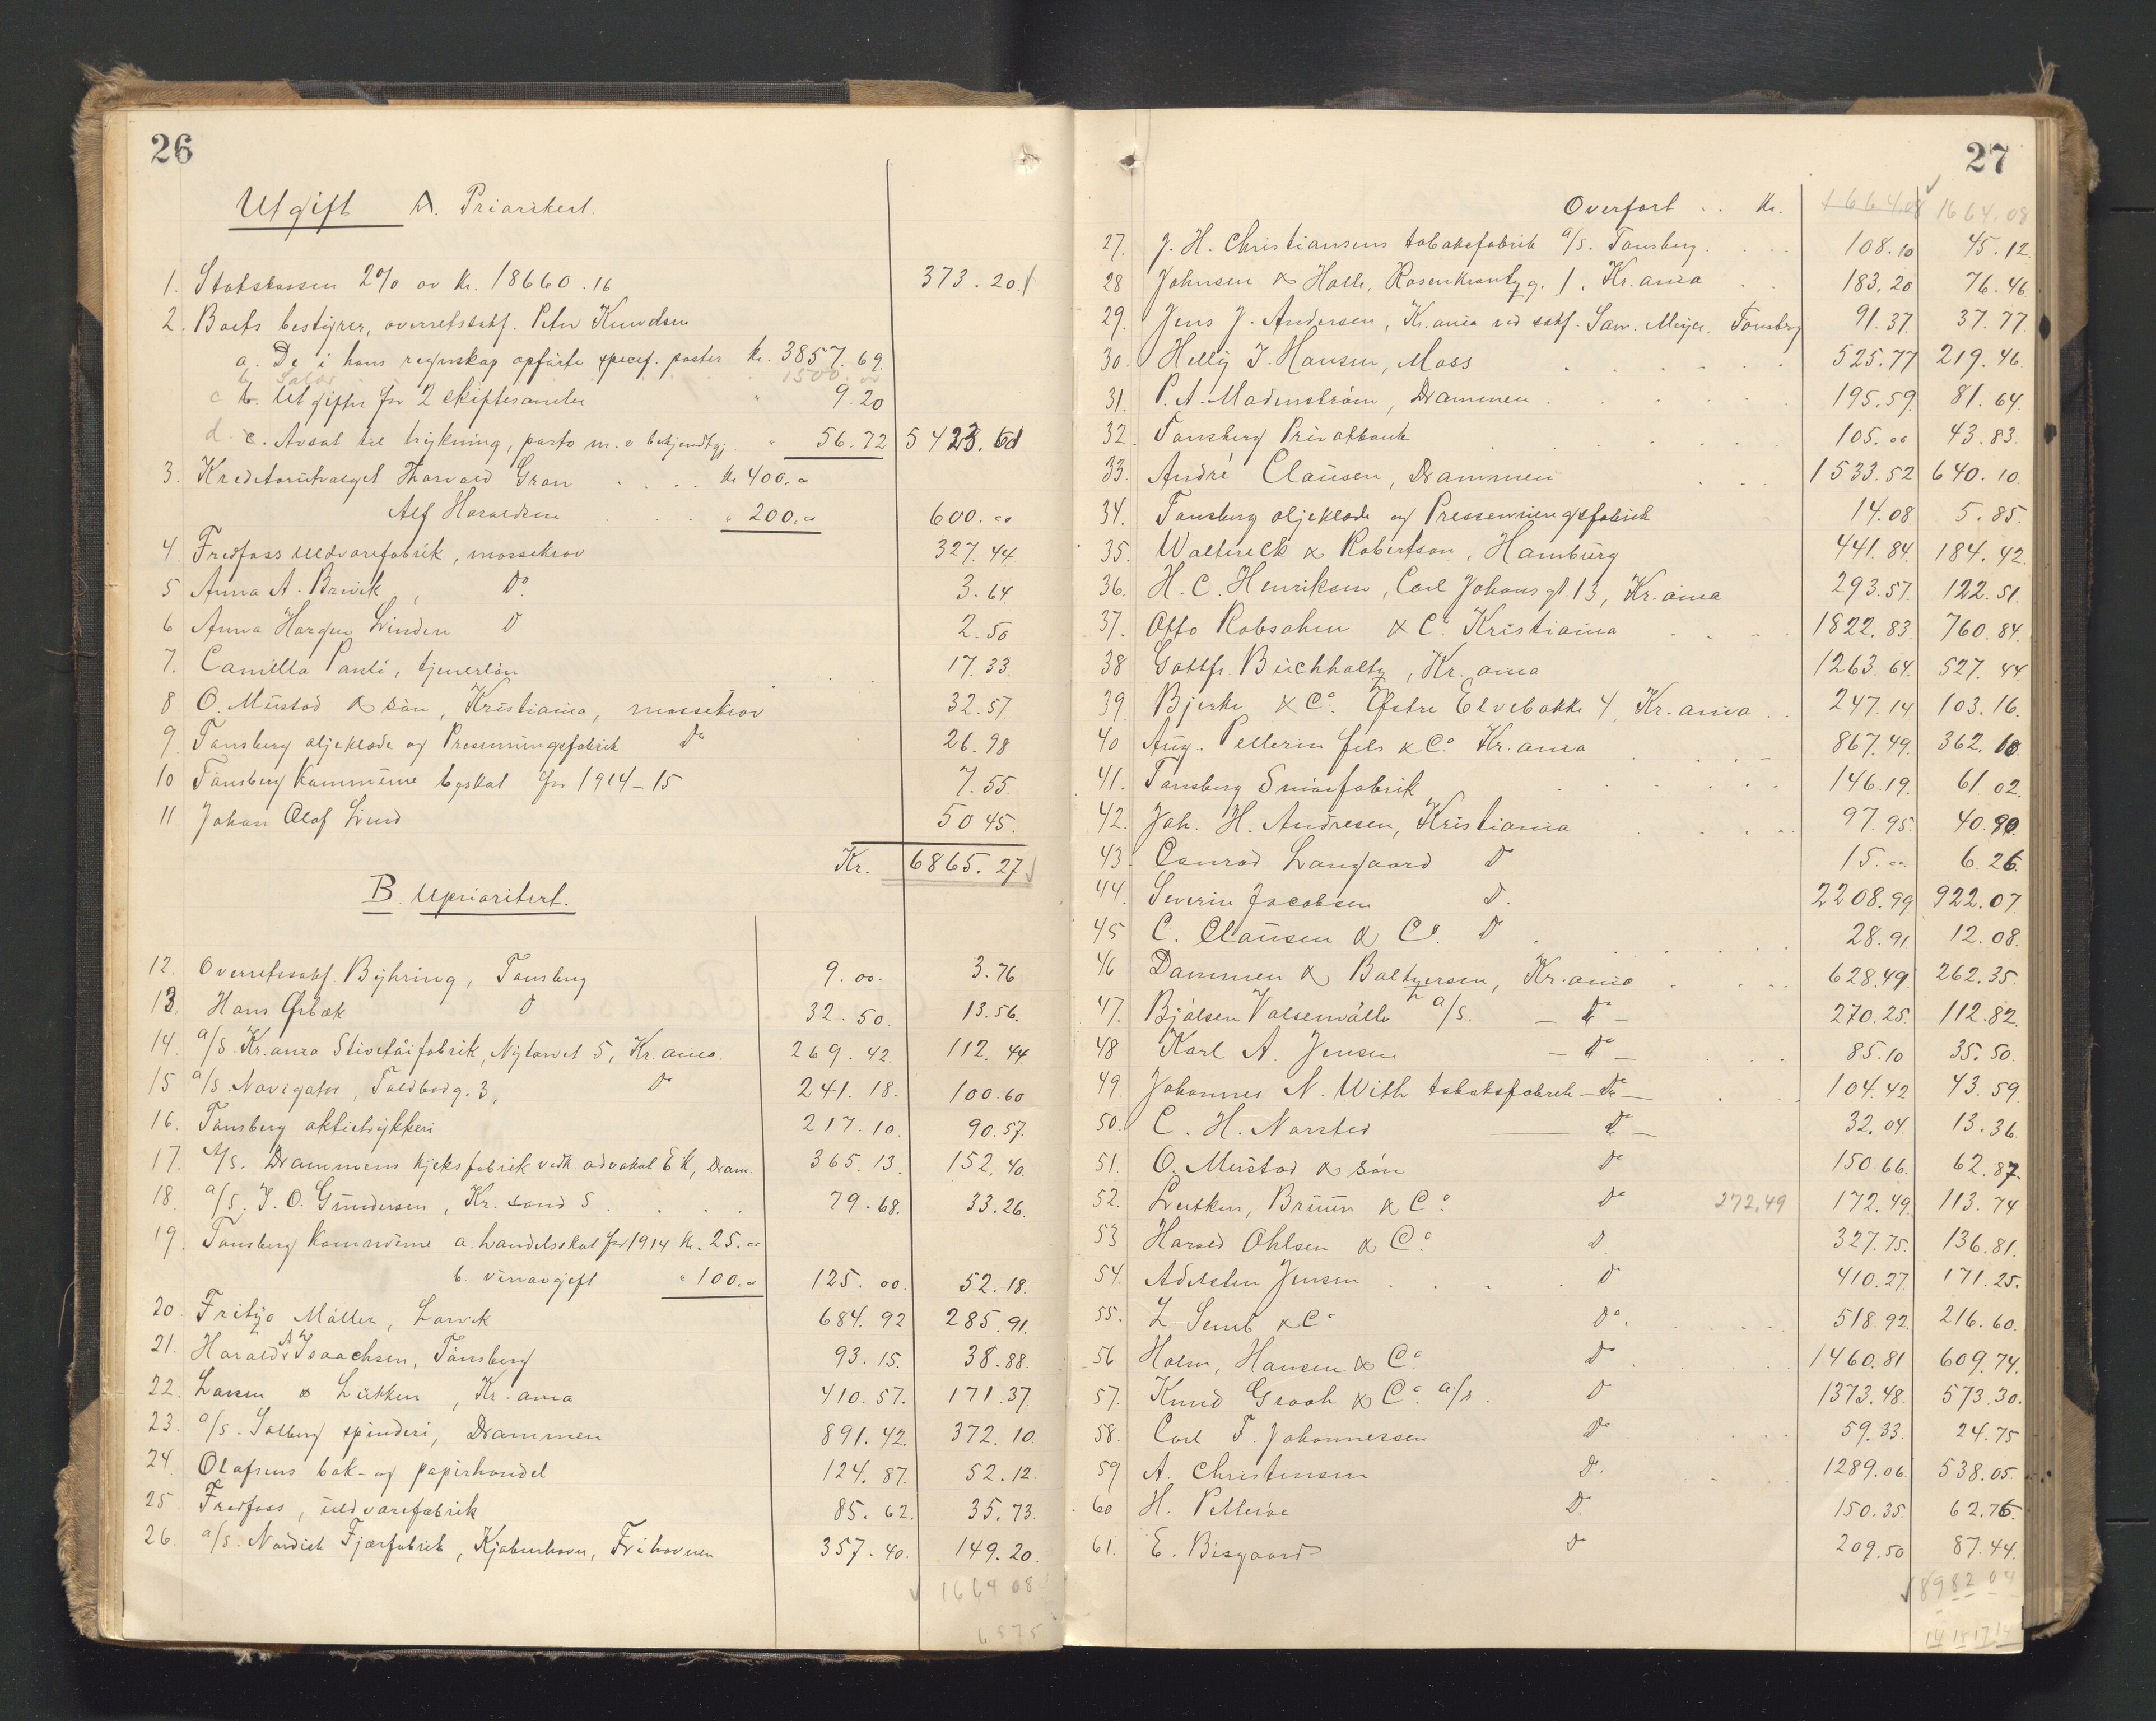 26
Utgift A. Prioritert.
1. Statskassen 2% av kr. 18660.16 373.20
2. Boets bestyrer, overretssakf. Peter Knudsen
a. De i hans regnskap opførte specif. poster kr. 3857.69
b. Salær 1500.00
c b. Utgifter for 2 skiftesamler " 9.20
d. c. Avsat til trykning, porto m.v. bekjendtgj. " 56.72 5423.61
3. Kreditorutvalget Thorvald Gran . . . . kr 400.00
Alf Haraldsen . . . " 200.00 600.00
4. Fredfoss uldvarefabrik, massekrav 327.44
5 Anna A. Brevik, Do. 3.64
6 Anna Hargen Linden D 2.50
7. Camilla Pauli, tjenerløn 17.33.
8 O. Mustad & Søn, Kristiania, massekrav 32.57.
9. Tønsberg oljeklæde og Presenningsfabrik Do 26.98
10 Tønsberg Kommune byskat for 1914-15 7.55.
11 Johan Olaf Lund 50 45.
Kr. 6865.27
B. Uprioritert.
12. Overretssakf. Byhring, Tønsberg 9.00. 3.76
13 Hans Ørbæk D 32.50. 13.56.
14. a/s. Kr.ania Stivetøifabrik, Nytorvet 5, Kr.ania. 269.42. 112.44
15 a/s Navigator, Toldbodg. 3, Do 241.18. 100.60
16. Tønsberg aktietrykkeri 217.10. 90.57.
17. A/S. Drammens kjeksfabrik vedk. advokat Ek, Dram. 365.13. 152.40.
18. a/s. J. O. Gundersen, Kr.sand S . . . . 79.68. 33.26.
19. Tønsberg Kommune a. handelsskat for 1914 kr. 25.00
b. vinavgift " 100.00 125.00. 52.18.
20. Fritzo Møller, Larvik 684.92 285.91.
21. Harald A. Isaachsen, Tønsberg 93.15. 38.88.
22. Larsen & Lütken, Kr.ania 410.57. 171.37.
23. a/s. Solberg spinderi, Drammen 891.42. 372.10.
24 Olafsens bok- og papirhandel 124.87. 52.12.
25. Fredfoss, uldvarefabrik 85.62. 35.73.
26. a/s. Nordisk Fjærfabrik, Kjøbenhavn, Frihavnen 357.40. 149.20.
1664 08
6575
27
Overført . . Kr. 1664.08 1664.08
27. J. H. Christiansens tobaksfabrik a/s. Tønsberg. . . . 108.10 45.12.
28 Johnsen & Halle, Rosenkrantzg. 1. Kr.ania . . 183.20 76.46
29. Jens J. Andersen, Kr.ania ved sakf. Sam. Meyer. Tønsberg 91.37. 37.77.
30. Helly J. Hansen, Moss . . . . . 525.77 219.46.
31. P. A. Madenstrøm, Drammen . . . . . 195.59. 81.64.
32. Tønsberg Privatbank . . . . 105.00 43.83.
33. André Clausen, Drammen . . . 1533.52 640.10.
34. Tønsberg oljeklæde og Presenningsfabrik 14.08. 5.85.
35. Waltereck & Robertson, Hamburg 441.84. 184.42.
36. H. C. Henriksen, Carl Johans gt. 13, Kr.ania 293.57. 122.51.
37. Otto Robsahm & Co. Kristiania . . . 1822.83. 760.84.
38 Gottfr. Büchholtz, Kr.ania 1263.64. 527.44
39. Bjerke & Co. Østre Elvebakke 4, Kr.ania . . 247.14 103.16.
40 Aug. Pellerin fils & Co. Kr.ania . . . 867.49. 362.10
41. Tønsberg Smørfabrik . . . . . 146.19. 61.02.
42. Joh. H. Andresen, Kristiania . . . . 97.95. 40.90
43. Conrad Langaard D 15.00 6.26
44. Severin Jacobsen D. 2208.99 922.07.
45 C. Clausen & Co. D . . . . . 28.91. 12.08.
46 Dammen & Baltzersen, Kr.ania . . . . 628.49. 262.35.
47. Bjølsen Valsemølle a/s. — Do — 270.25. 112.82.
48 Karl A. Jensen — Do — . . . 85.10 35.50.
49. Johannes N. With tobaksfabrik — Do — . . 104.42 43.59.
50. C. H. Narsted — Do — 32.04. 13.36.
51. O. Mustad & Søn Do 150.66. 62.87.
52. Lutken, Bruun & Co. Do 272.49 172.49. 113.74
53 Harald Ohlsen & Co. D. 327.75. 136.81.
54. Adelsten Jensen . . . . D 410.27. 171.25.
55. Z. Semb & Co Do. . . . . 518.92. 216.60.
56 Holm, Hansen & Co Do . . . . 1460.81 609.74.
57. Knud Graah & Co. a/s. D 1373.48. 573.30.
58. Carl F. Johannessen Do . . . 59.33. 24.75
59 A. Christensen D. . . . 1289.06. 538.05.
60 H. Pettersøe D. 150.35. 62.76.
61. E. Bisgaard D 209.50 87.44.
8982 04
14 15 17 14